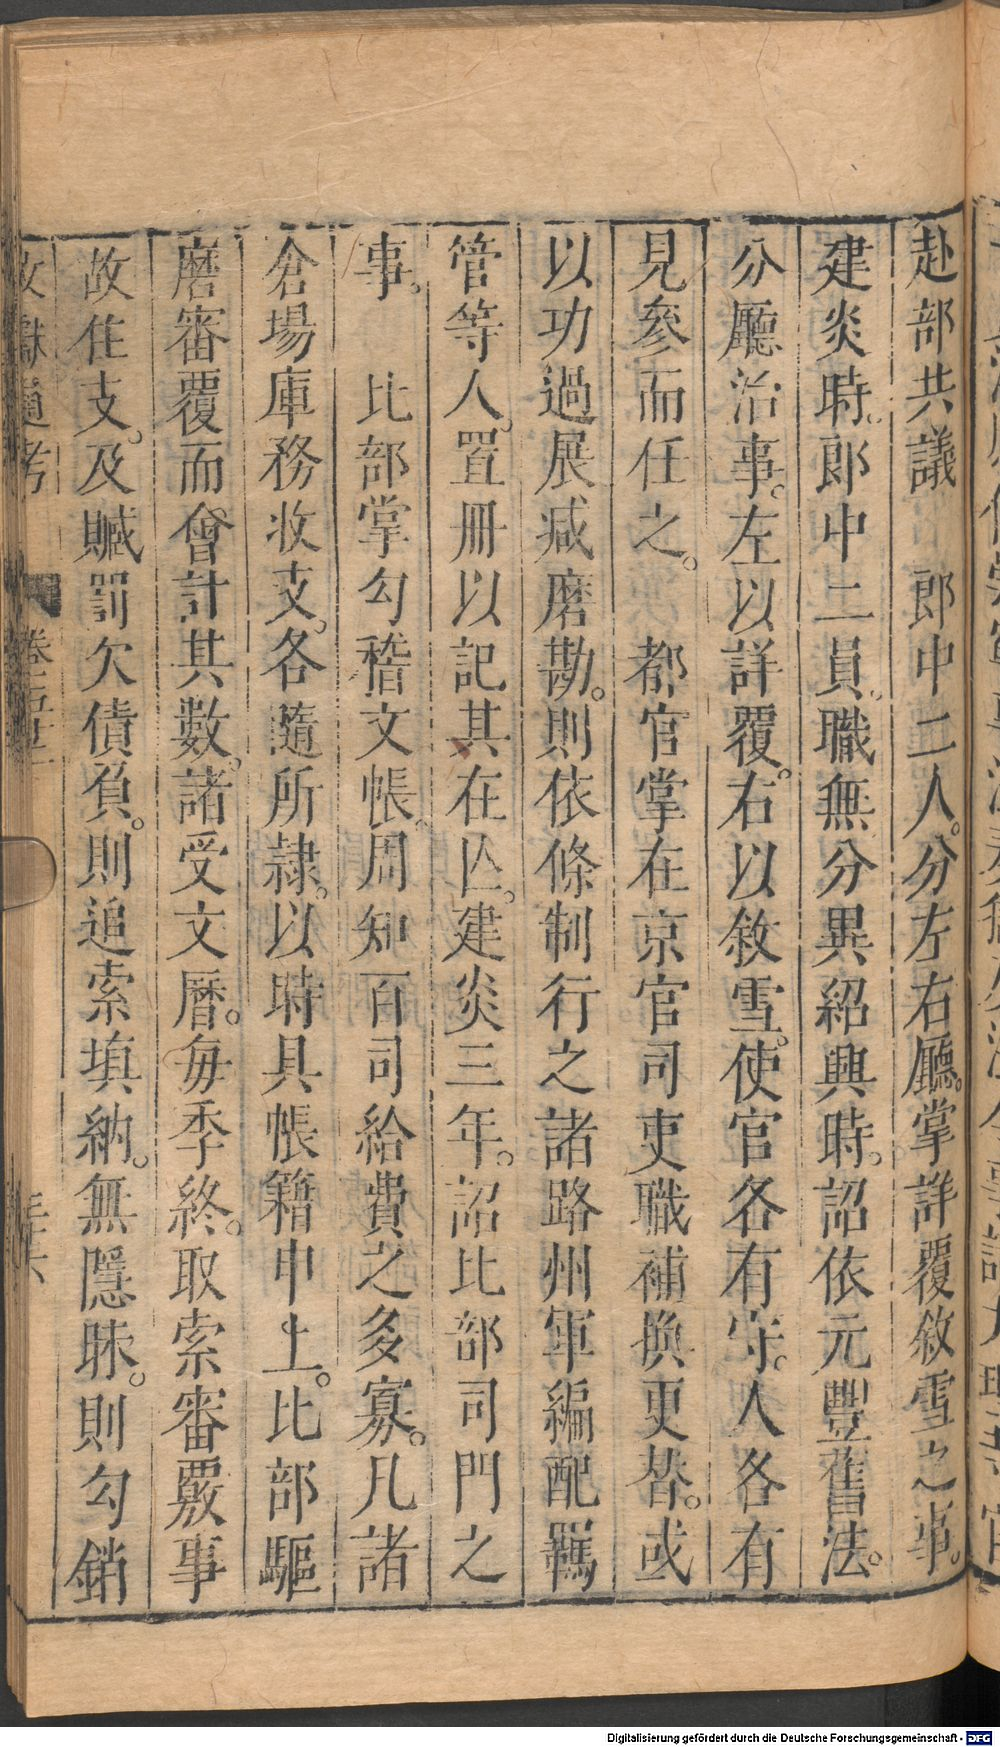 赴部共議　郎中二人。分左右廳。掌詳覆敘雪之事。
建炎時。郎中二員。職無分異紹興時。詔依元豐舊法。
分廳治事。左以詳覆。右以敘雪。使官各有守。人各有
見參而任之。　都官掌在京官司吏職補換更替。或
以功過展減磨勘。則依條制行之諸路州軍編配羈
管等人。置冊以記其在亾。建炎三年。詔比部司門之
事。　比部掌勾稽文帳。周知百司給費之多寡。凡諸
倉場庫務收支。各隨所隷。以時具帳籍申上。比部驅
磨審覆而會計其數。諸受文曆。每季終。取索審覈事
故住支。及贓罰欠債負。則追索填納。無隱昧。則勾銷
文獻通考　卷五十二　三六
Digitalisierung gefördert durch die Deutsche Forschungsgemeinschaft - DFG